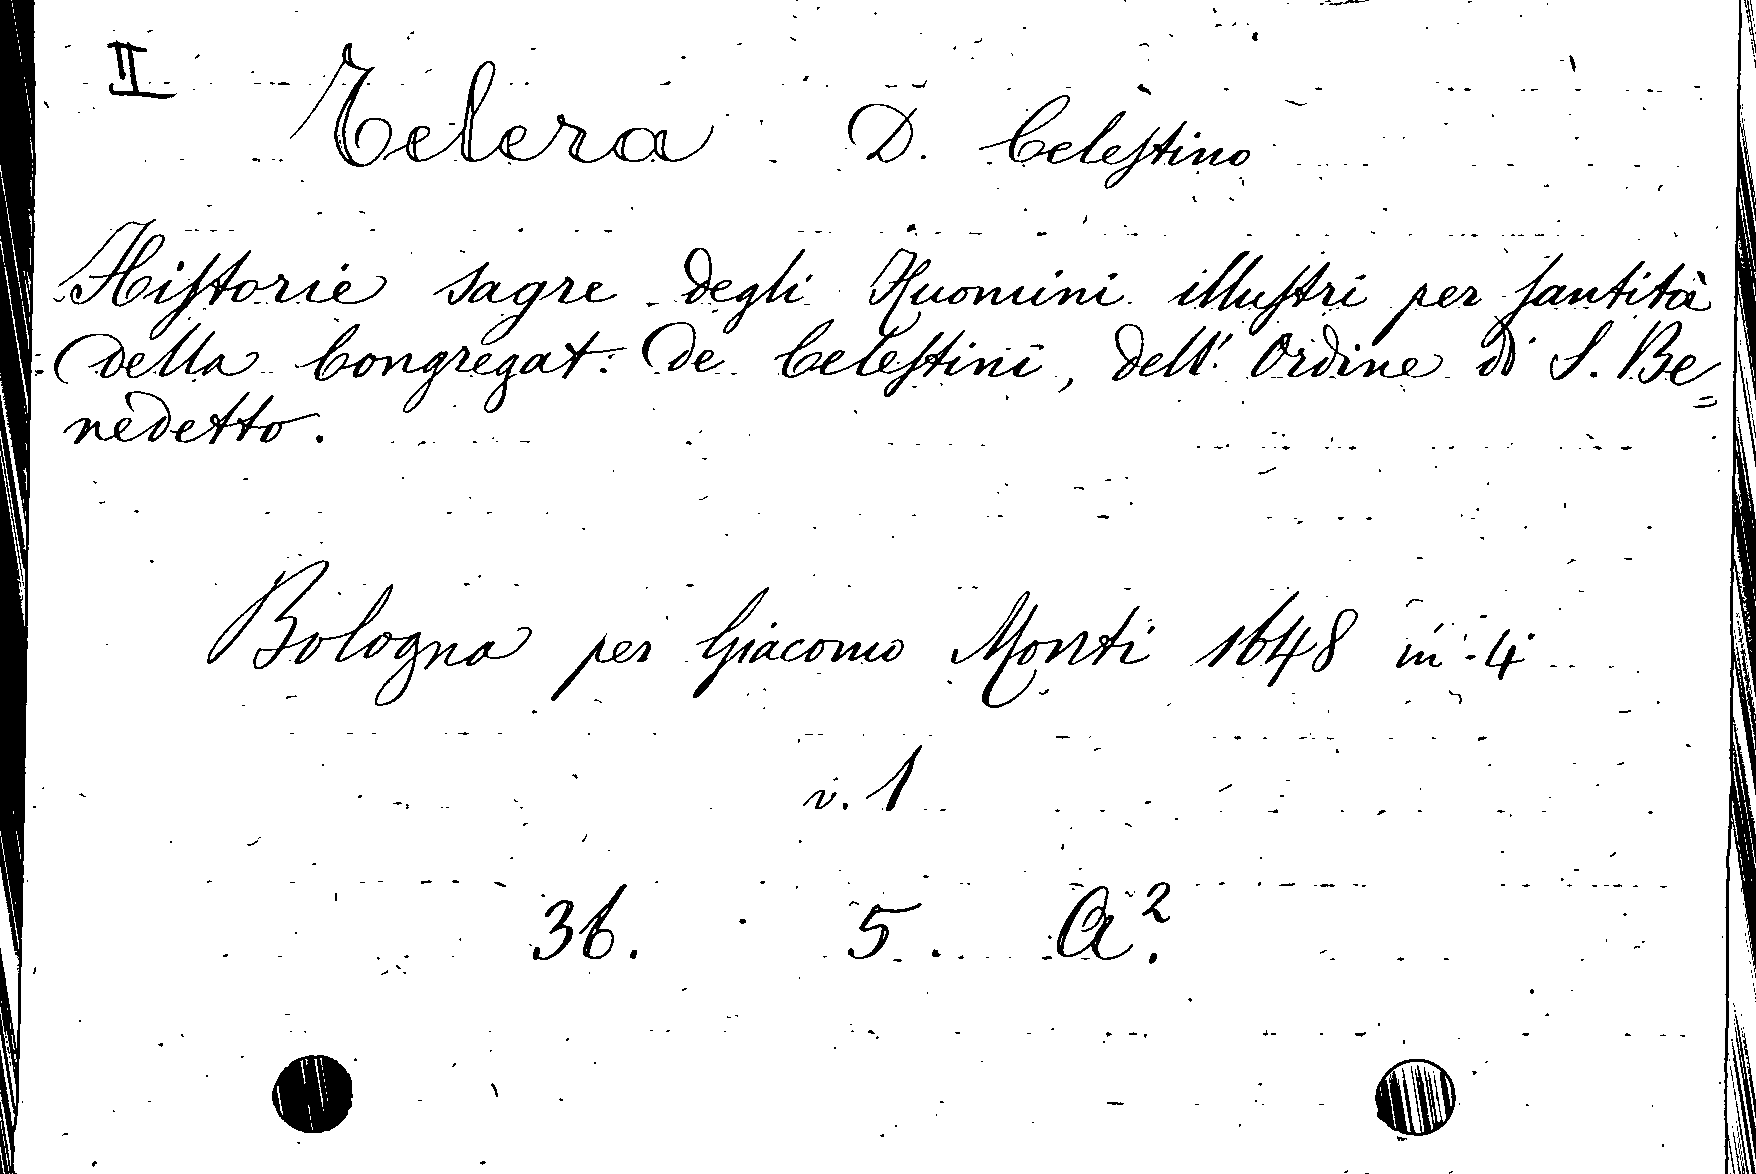 II
Telera D. Celestino
Historie sagre degli Huomini illustri per santità
della Congregat: de Celestini, dell' Ordine di S. Be=
nedetto.
Bologna per Giacomo Monti 1648 in 4
v. 1
36. 5. A².